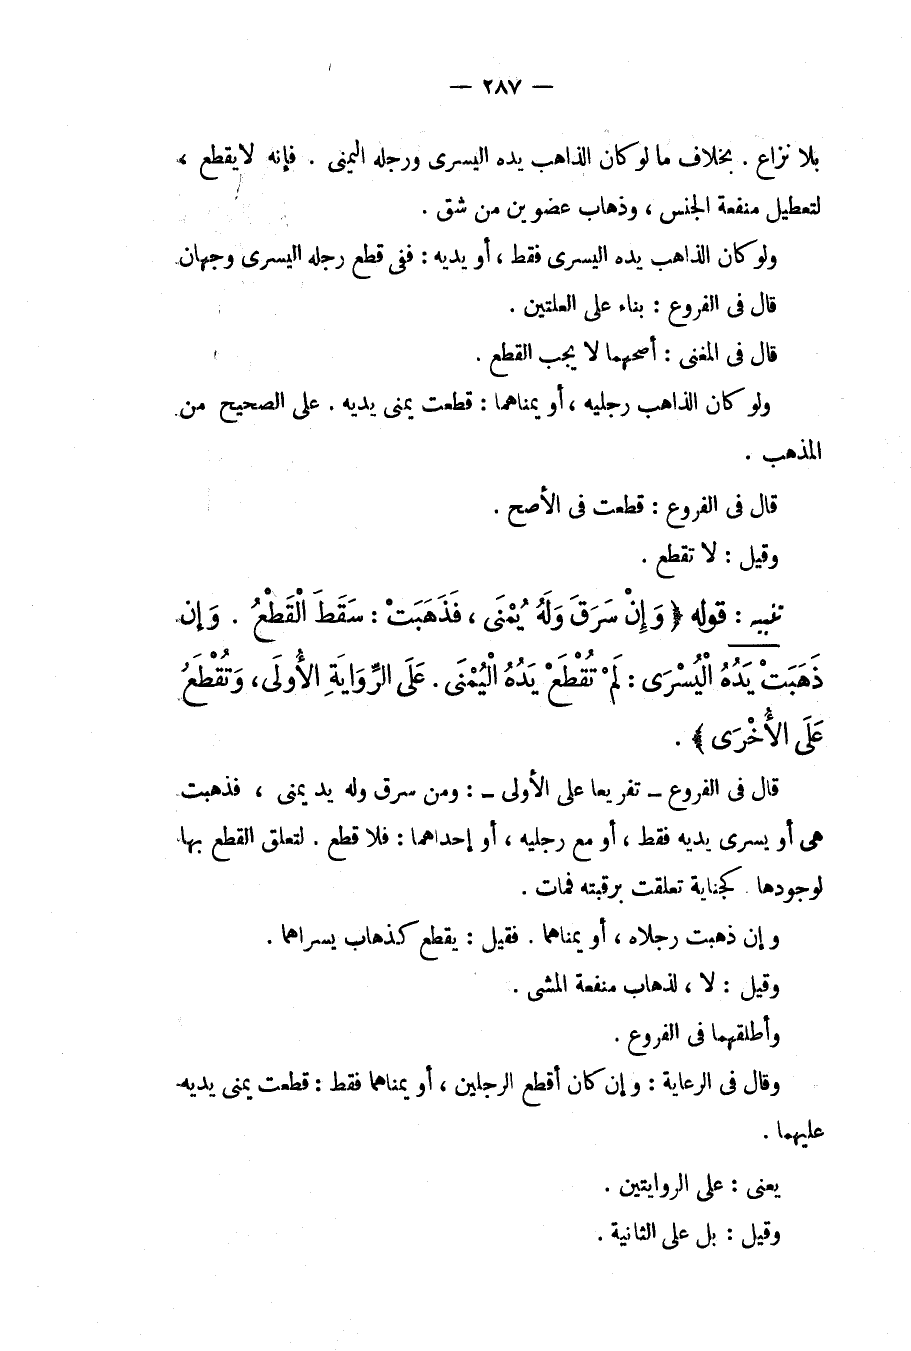 — ٢٨٧ —
بلا نزاع . بخلاف ما لو كان الذاهب يده اليسرى ورجله اليمنى . فإنه لا يقطع ،
لتعطيل منفعة الجنس ، وذهاب عضوين من شق .
ولو كان الذاهب يده اليسرى فقط ، أو يديه : ففى قطع رجله اليسرى وجهان
قال فى الفروع : بناء على العلتين .
قال فى المغنى : أصحهما لا يجب القطع .
ولو كان الذاهب رجليه ، أو يمناهما : قطعت يمنى يديه . على الصحيح من
المذهب .
قال فى الفروع : قطعت فى الأصح .
وقيل : لا تقطع .
تنبيه : قوله ﴿ وَإِنْ سَرَقَ وَلَهُ يُمْنَى ، فَذَهَبَتْ : سَقَطَ الْقَطْعُ . وَإِن
ذَهَبَتْ يَدُهُ الْيُسْرَى : لَمْ تُقْطَعْ يَدُهُ الْيُمْنَى . عَلَى الرِّوَايَةِ الأُولَى ، وَتُقْطَعُ
عَلَى الأُخْرَى ﴾ .
قال فى الفروع ــ تفريعا على الأولى ــ : ومن سرق وله يد يمنى ، فذهبت
هى أو يسرى يديه فقط ، أو مع رجليه ، أو إحداهما : فلا قطع . لتعلق القطع بها
لوجودها . كجناية تعلقت برقبته فمات .
وإن ذهبت رجلاه ، أو يمناهما . فقيل : يقطع كذهاب يسراهما .
وقيل : لا ، لذهاب منفعة المشى .
وأطلقهما فى الفروع .
وقال فى الرعاية : وإن كان أقطع الرجلين ، أو يمناهما فقط : قطعت يمنى يديه
عليهما .
يعنى : على الروايتين .
وقيل : بل على الثانية .